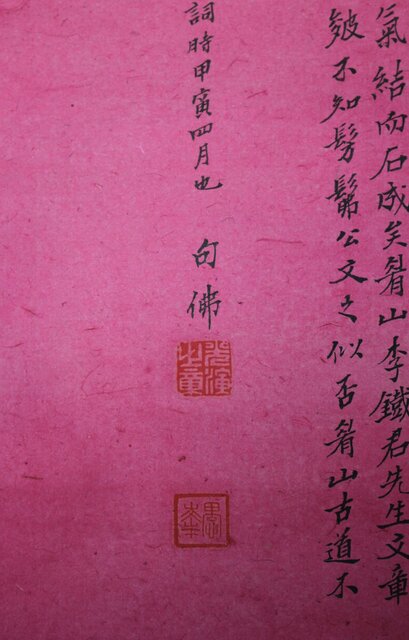 氣結而石成矣睂山李鐵君先生文章
皴不知髣髴公文之似否睂山古道不
詞時甲寅四月也
句佛
之章